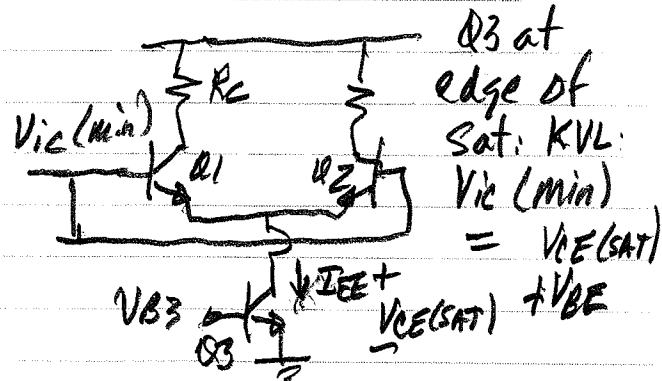 Q3 at
edge of
Sat: KVL:
Vic (min)
= VCE(SAT)
+VBE
Rc
Vic (min)
Q1
Q2
IEE
+
VCE(SAT)
-
VB3
Q3